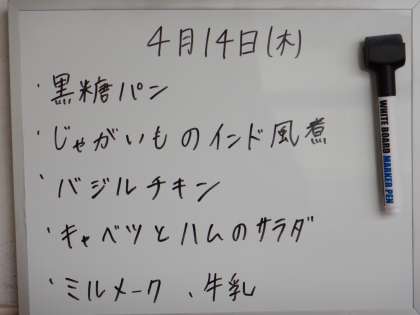 4月14日(木)
・黒糖パン
・じゃがいものインド風煮
・バジルチキン
・キャベツとハムのサラダ
・ミルメーク、牛乳
WHITE BOARD MARKER PEN